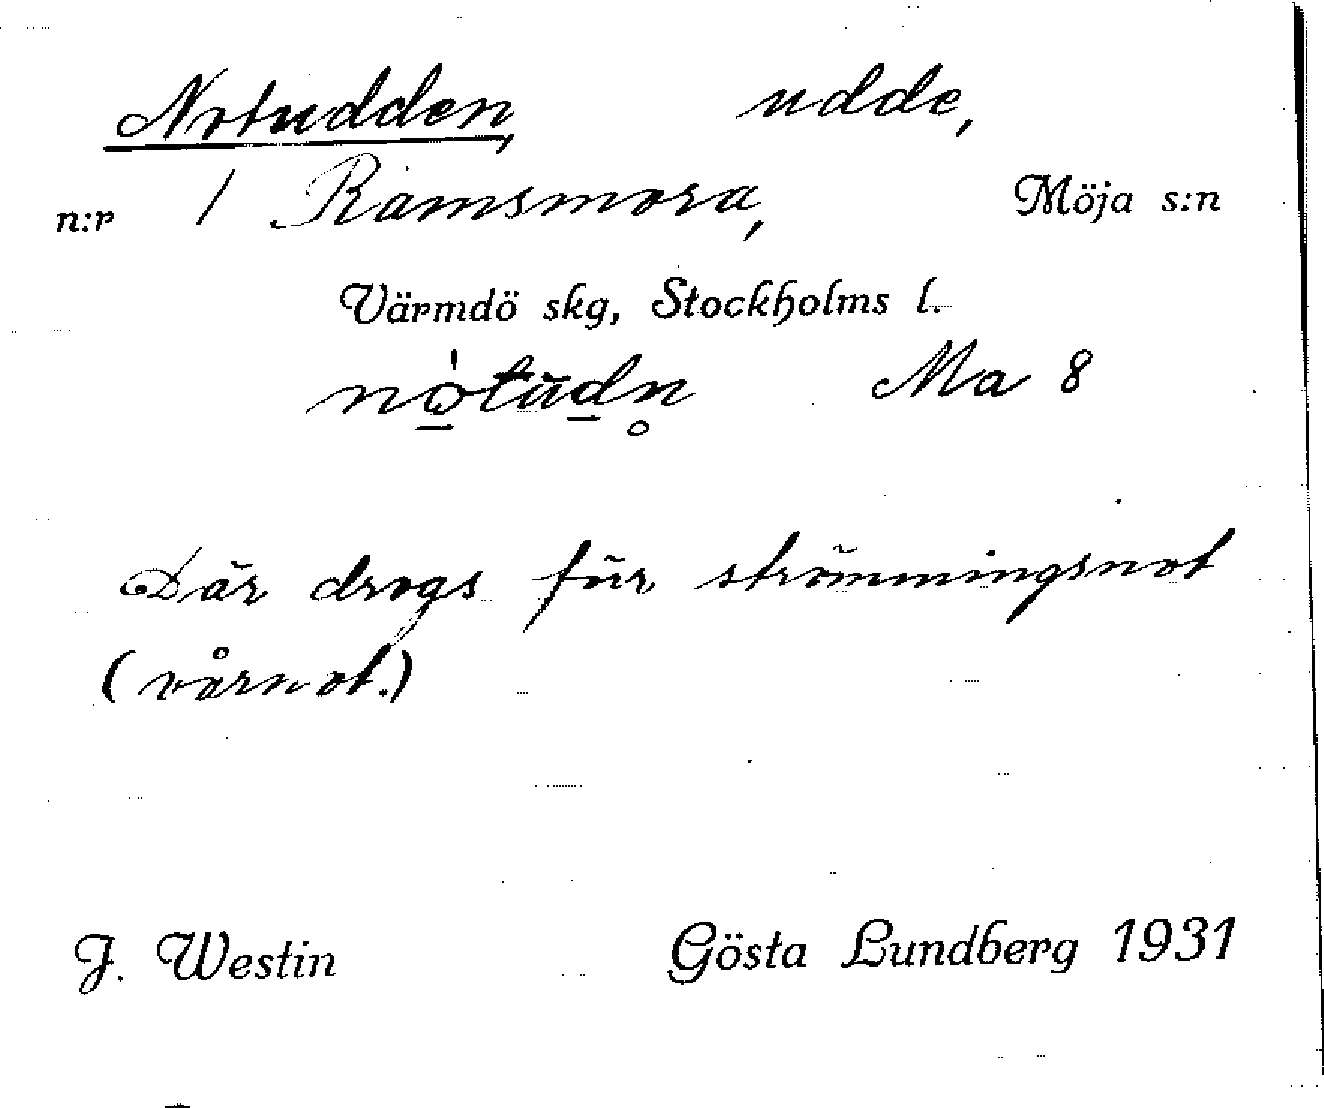 Notudden, udde,
n:r 1 Ramsmora, Möja s:n
Värmdö skg, Stockholms l.
nò̱tüḏn̥ Ma 8
Där drogs für strömmingsnot
(vårnot.)
J. Westin Gösta Lundberg 1931